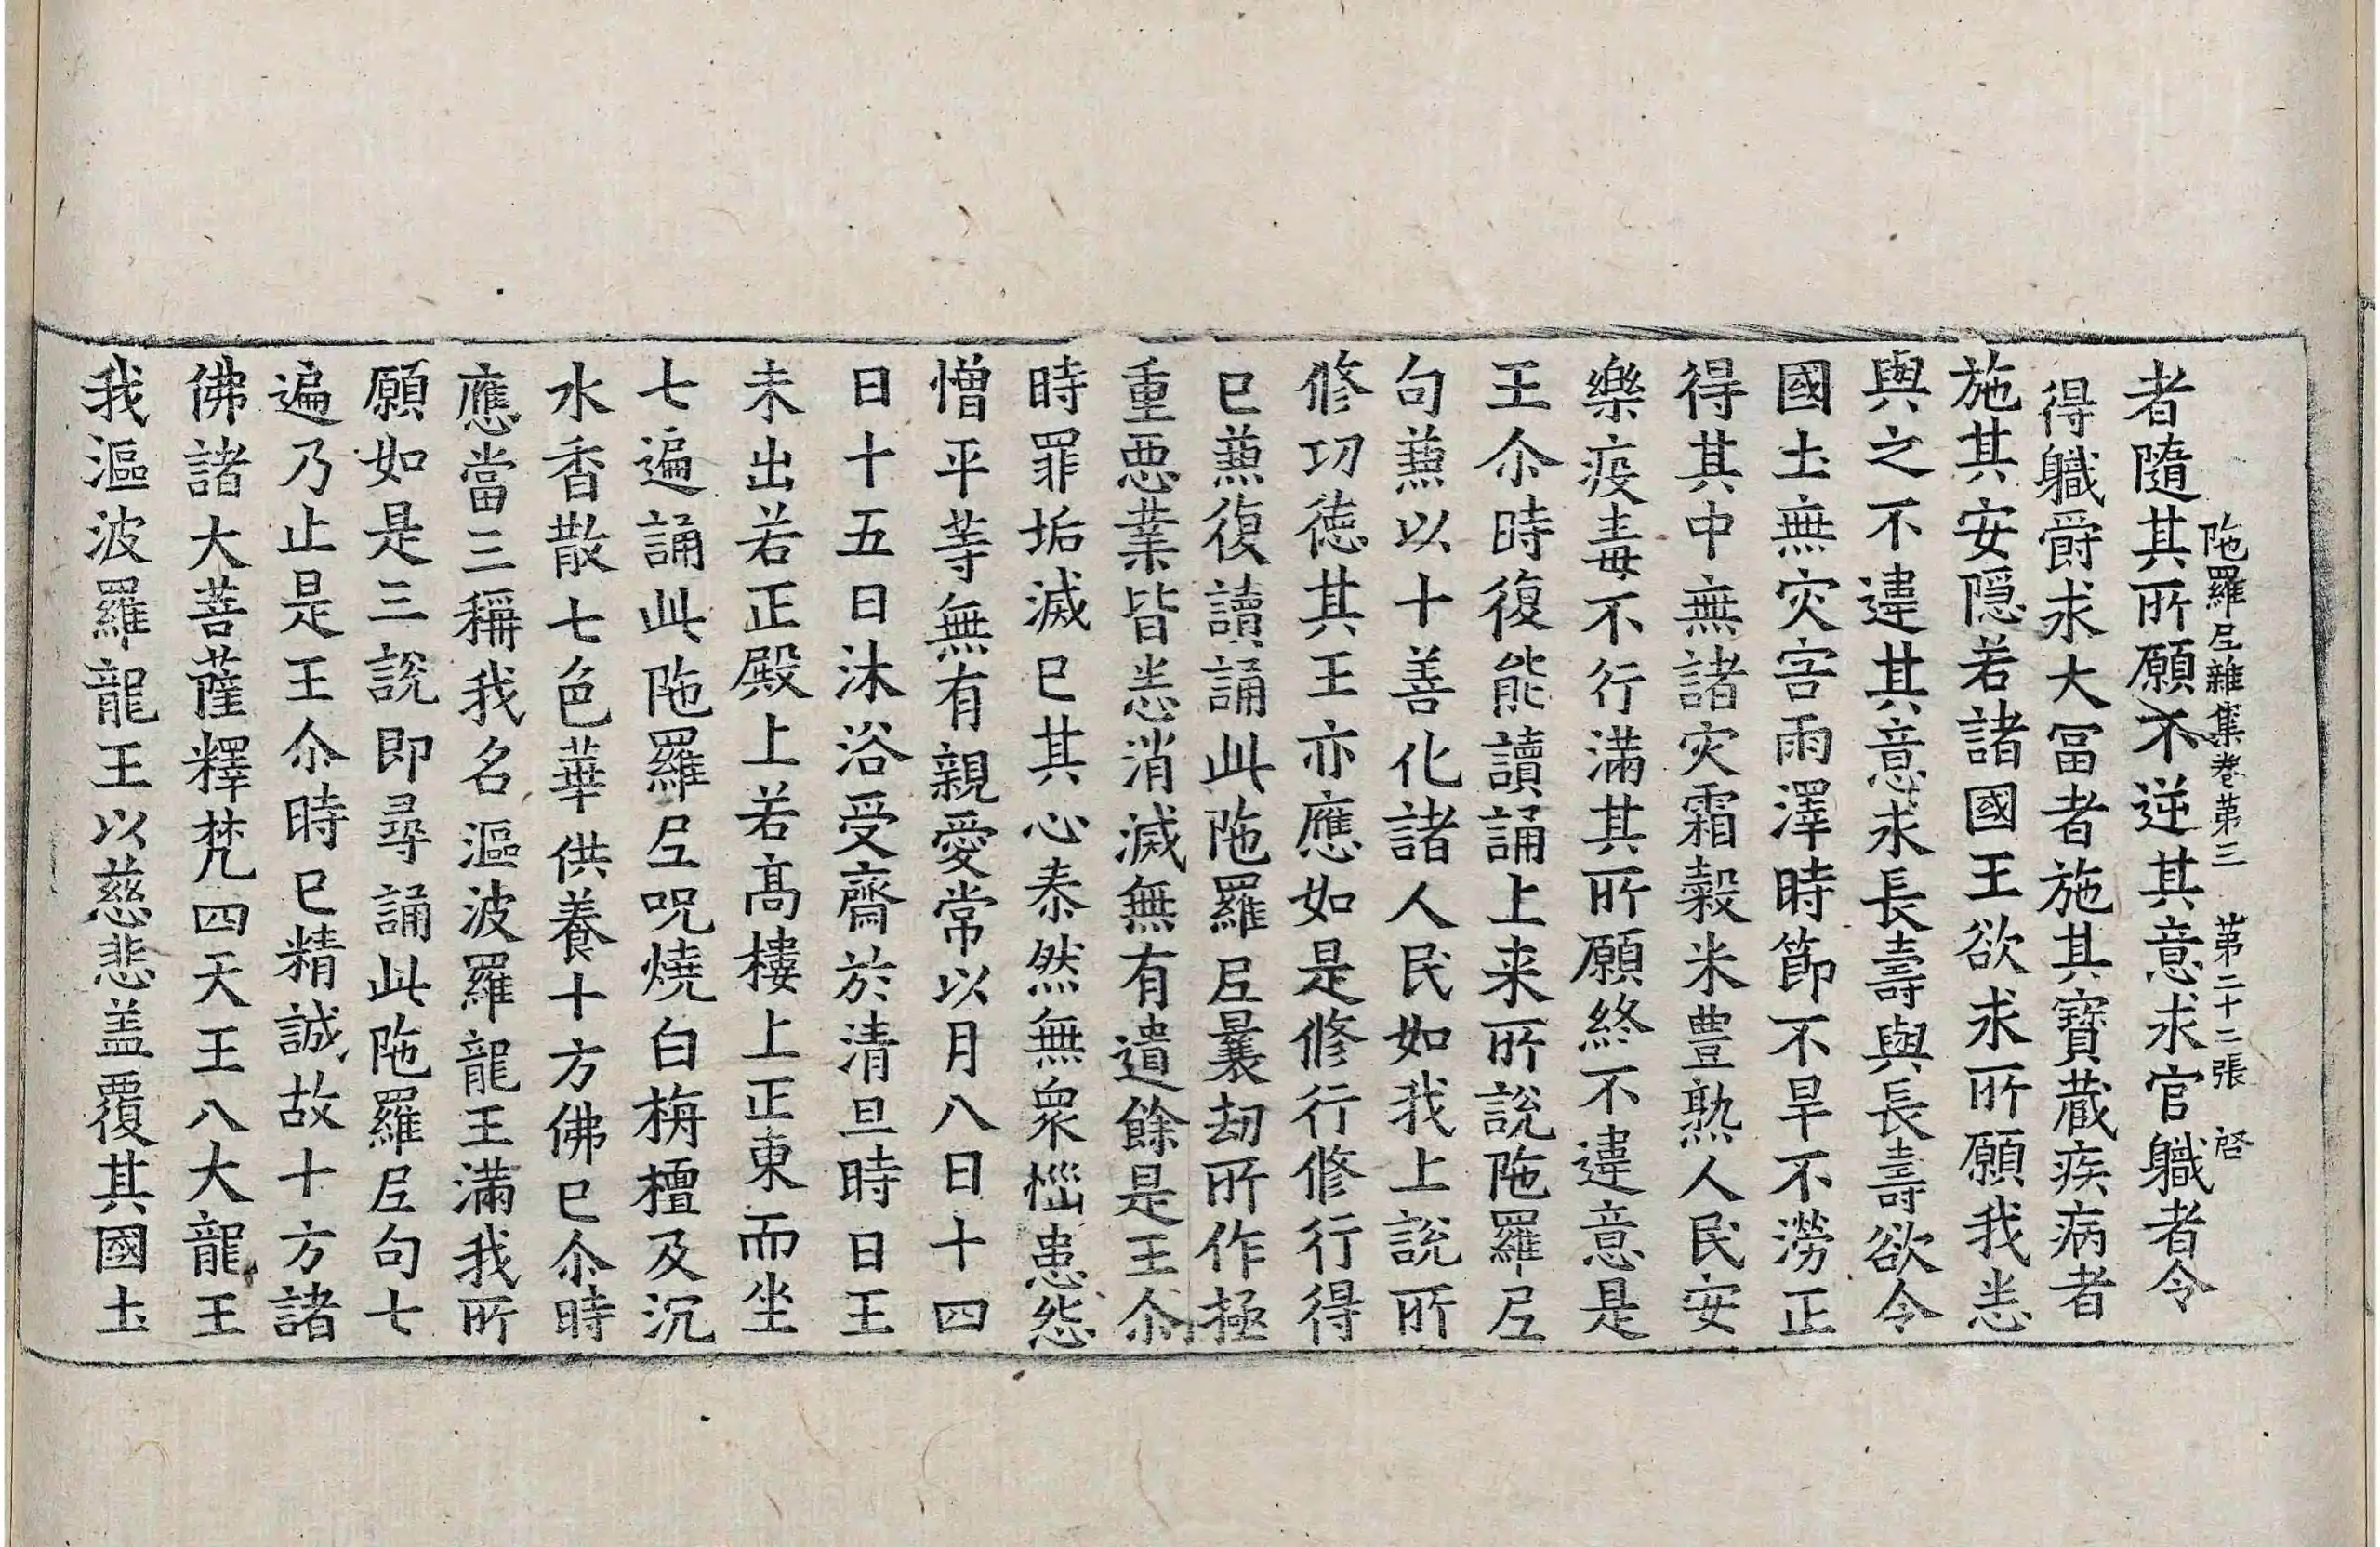 陁羅尼雜集卷第三　第二十二張　啓
者隨其所願不逆其意求官職者令
得職爵求大冨者施其寶蔵疾病者
施其安隠若諸國王欲求所願我悉
與之不違其意求長壽與長壽欲令
國土無灾害雨澤時節不旱不澇正
得其中無諸灾霜穀米豊熟人民安
樂疫毒不行滿其所願終不違意是
王尒時復能讀誦上来所說陁羅尼
句兼以十善化諸人民如我上說所
修功徳其王亦應如是修行修行得
已兼復讀誦此陁羅尼曩劫所作極
重惡業皆悉消滅無有遺餘是王尒
時罪垢滅已其心泰然無衆惱患怨
憎平等無有親愛常以月八日十四
日十五日沐浴受齋於清旦時日王
未出若正殿上若髙樓上正東而坐
七遍誦此陁羅尼呪燒白栴檀及沉
水香散七色華供養十方佛已尒時
應當三稱我名漚波羅龍王滿我所
願如是三說即尋誦此陁羅尼句七
遍乃止是王尒時已精誠故十方諸
佛諸大菩薩釋梵四天王八大龍王
我漚波羅龍王以慈悲盖覆其國土